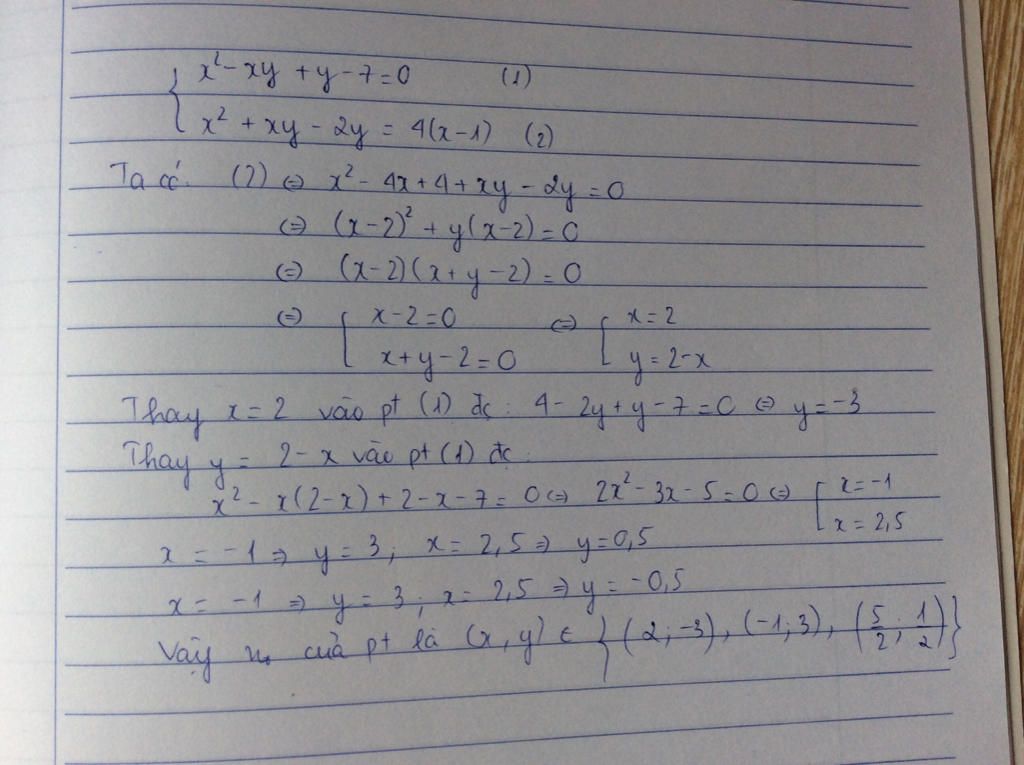 { x² - xy + y - 7 = 0 (1)
x² + xy - 2y = 4(x-1) (2)
Ta có: (2) ⇔ x² - 4x + 4 + xy - 2y = 0
⇔ (x-2)² + y(x-2) = 0
⇔ (x-2)(x+y-2) = 0
⇔ [ x-2=0 ⇔ [ x=2
x+y-2=0 y=2-x
Thay x=2 vào pt (1) đc: 4 - 2y + y - 7 = 0 ⇔ y = -3
Thay y = 2-x vào pt (1) đc:
x² - x(2-x) + 2 - x - 7 = 0 ⇔ 2x² - 3x - 5 = 0 ⇔ [ x=-1
x=2,5
x = -1 ⇒ y = 3; x = 2,5 ⇒ y=0,5
x = -1 ⇒ y = 3; x = 2,5 ⇒ y = -0,5
Vậy n₀ của pt là (x,y) ∈ { (2;-3), (-1;3), (5/2; 1/2) }